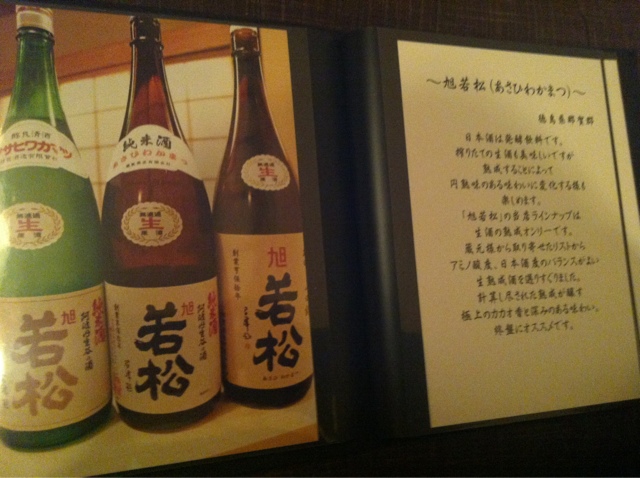 超良清酒
アサヒワカマツ
無濾過
生
原酒
純米酒
旭
若松
純米酒
あさひわかまつ
無濾過
生
原酒
純米酒
旭
若松
生
原酒
旭
若松
～旭若松(あさひわかまつ)～
徳島県那賀郡
日本酒は発酵飲料です。
搾りたての生酒も美味しいですが
熟成することによって
円熟味のある味わいに変化する様も
楽しめます。
「旭若松」の当店ラインナップは
生酒の熟成オンリーです。
蔵元様から取り寄せたリストから
アミノ酸度、日本酒度のバランスがよい
生熟成酒を選りすぐりました。
計算し尽された熟成が醸す
極上のカカオ香と深みのある味わい。
終盤にオススメです。